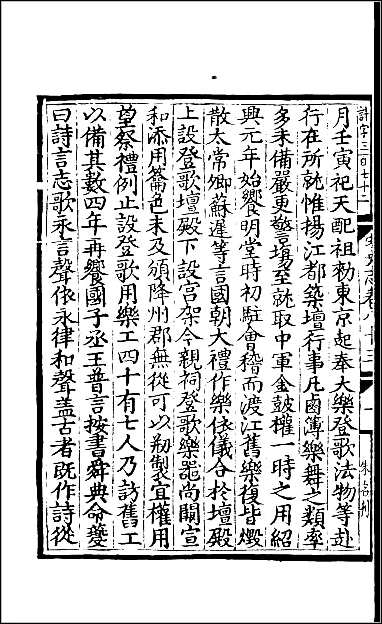 月壬寅祀天配祖勑東京起奉大樂登歌法物等赴
行在所就惟揚江都築壇行事凡鹵簿樂舞之類率
多未備嚴更警場至就取中軍金鼓權一時之用紹
興元年始饗明堂時初駐會稽而渡江舊樂復皆燬
散太常卿蘇遲等言國朝大禮作樂依儀合於壇殿
上設登歌壇殿下設宮架今親祠登歌樂器尚闕宣
和添用籥色未及頒降州郡無從可以剏製宜權用
望祭禮例止設登歌用樂工四十有七人乃訪舊工
以備其數四年再饗國子丞王普言按書舜典命夔
曰詩言志歌永言聲依永律和聲蓋古者既作詩從
計字三百七十二
宋史志卷八十三
一